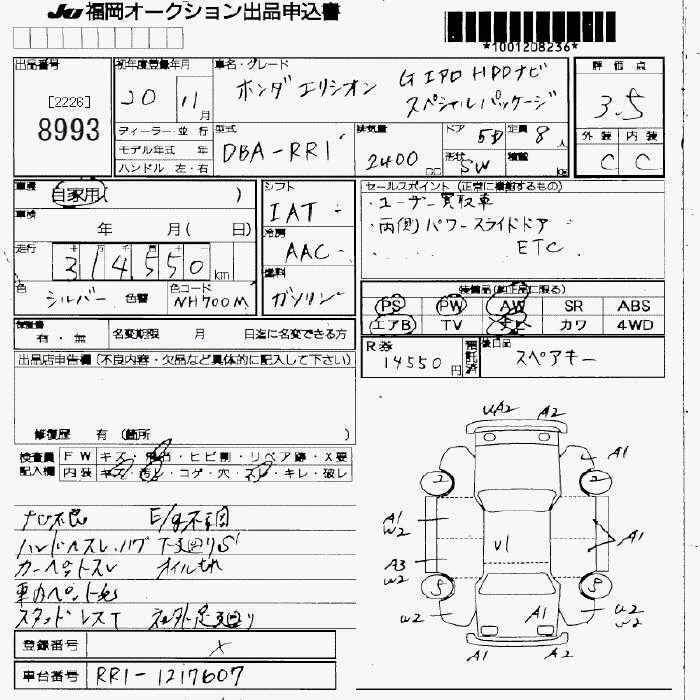 JU 福岡オークション出品申込書
*1001208236*
出品番号
[2226]
8993
初年度登録年月
20 11月
車名・グレード
ホンダ エリシオン G エアロ HDDナビ
スペシャルパッケージ
評価点
3.5
外装 内装
C C
ディーラー・並行
モデル年式 年
ハンドル 左・右
型式
DBA-RR1
排気量
2400 cc
ドア 5D
定員 8人
形状 SW
積載 kg
車歴
自家用( )
車検
年 月( 日)
走行
314550 km
色 シルバー 色替
色コード NH700M
シフト
IAT
冷房
AAC
燃料
ガソリン
セールスポイント (正常に機能するもの)
・ユーザー買取車
・両(側)パワースライドドア
ETC
装備品(純正品に限る)
PS PW AW SR ABS
エアB TV カワ 4WD
R券
14550円
預託済
後日品
スペアキー
有・無
名変期限 月 日迄に名変できる方
出品店申告欄 (不良内容・欠品など具体的に記入して下さい)
修復歴 有 (箇所 )
検査員記入欄
FW キズ・ ・ヒビ割・リペア跡・X要
内装 キズ・汚レ・コゲ・穴・スレ・キレ・破レ
ナビ不良 E/g不調
ハンドルスレ
カーペットスレ オイルもれ
スタッドレスT
登録番号
車台番号 RR1-1217607
UA2 A2
A1
2 2
A1
W2
V1
A1
A3
W2
S S
U2
A1
U2
W2
A1 A2